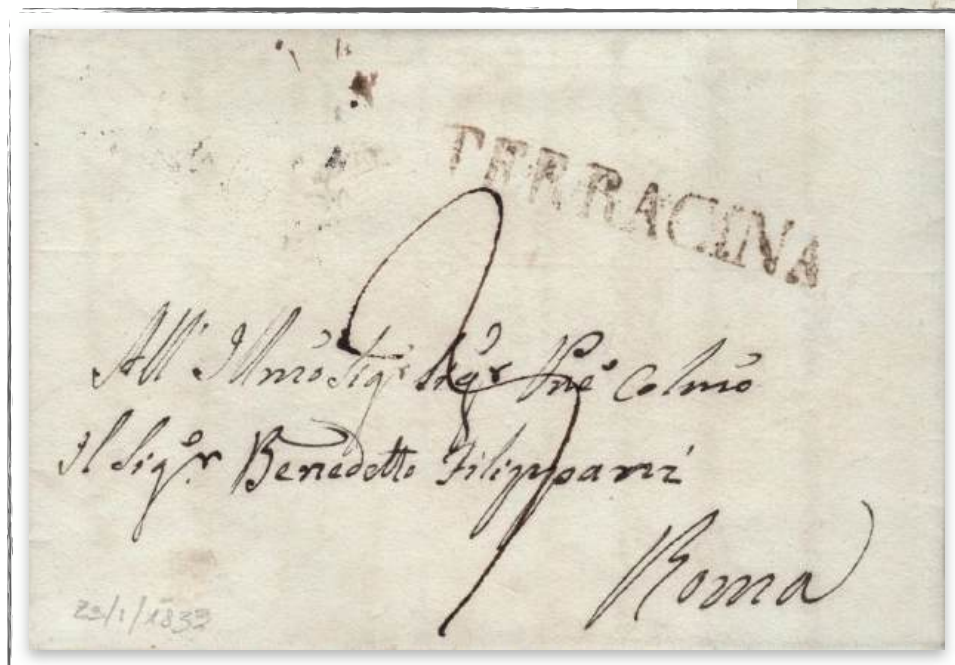 TERRACINA
All' Illmo Sigr Sigr Pne Colmo
Il Sigr Benedetto Filippani
Roma